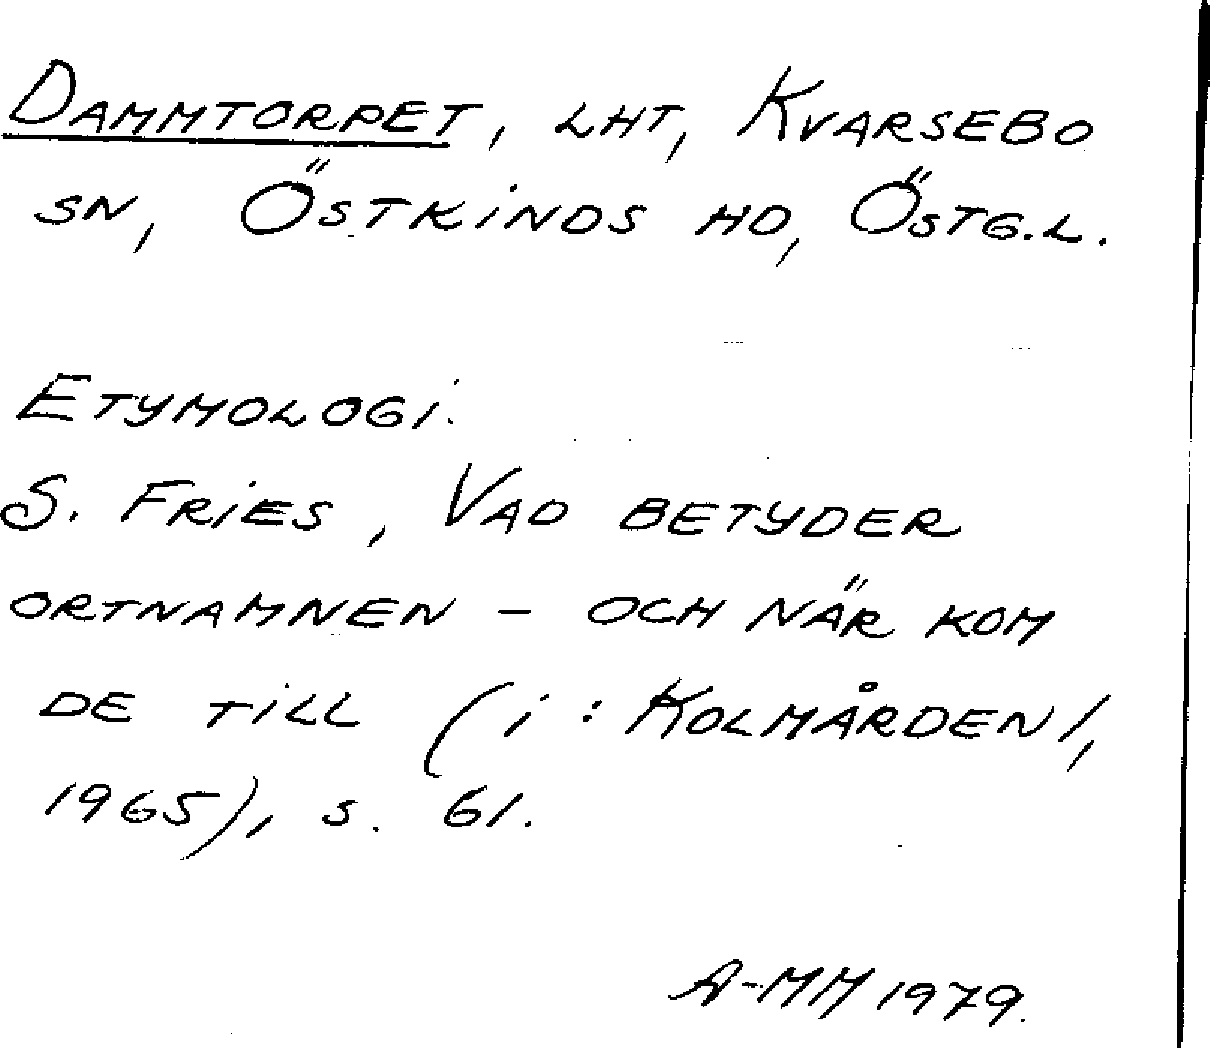 DAMMTORPET, LHT, KVARSEBO
SN, ÖSTKINDS HD, ÖSTG.L.
ETYMOLOGI.
S. FRIES, VAD BETYDER
ORTNAMNEN – OCH NÄR KOM
DE TILL (i: KOLMÅRDEN/,
1965), S. 61.
A-MM 1979.